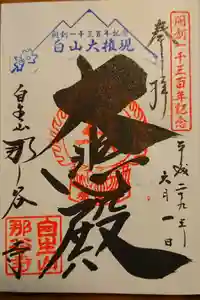 開創一千三百年記念
奉拝
平成二九年
六月一日
大悲殿
開創一千三百年記念
白山大権現
自生山
那谷寺
自生山
那谷寺